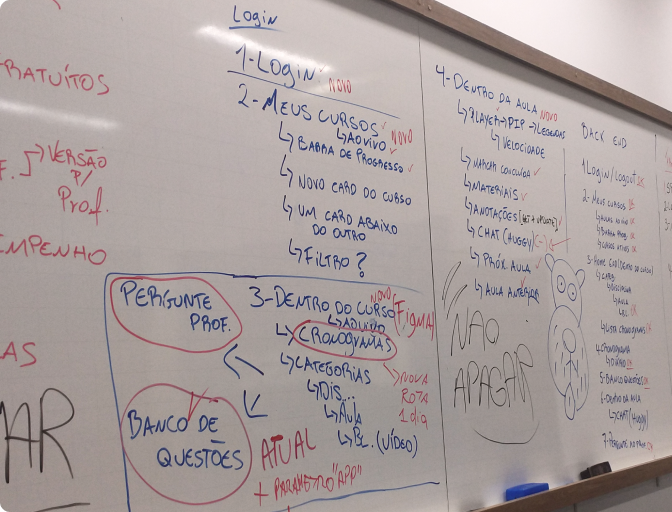 RATUÍTOS
VERSÃO
P/
Prof.
EMPENHO
AS
AR
Login
1-Login NOVO
2- MEUS CURSOS NOVO
↳ AO VIVO
↳ BARRA DE PROGRESSO
↳ NOVO CARD DO CURSO
↳ UM CARD ABAIXO
DO OUTRO
↳ FILTRO?
PERGUNTE
PROF.
BANCO DE
QUESTÕES
3-DENTRO DO CURSO NOVO (FIGMA)
↳ AO VIVO
↳ CRONOGRAMAS
↳ CATEGORIAS
↳ DIS...
↳ AULA
↳ BL. (VÍDEO)
NOVA
ROTA
1 dia
ATUAL
+ PARAMETRO "APP"
4-DENTRO DA AULA NOVO
↳ PLAYER → PIP → LEGENDAS
↳ VELOCIDADE
↳ MARCAR CONCLUÍDA
↳ MATERIAIS
↳ ANOTAÇÕES [GET + UPDATE]
↳ CHAT (HUGGY)
↳ PRÓX. AULA
↳ AULA ANTERIOR
NAO
APAGAR
BACK END
1 Login/Logout OK
2- MEUS CURSOS OK
↳ AULAS AO VIVO OK
↳ BARRA PROG. OK
↳ CURSOS ATIVOS OK
↳ AULA
↳ BL. OK
↳ LISTA CRONOGRAMAS OK
4 CRONOGRAMA
5-BANCO QUESTÕES OK
6-DENTRO DA AULA
↳ CHAT (HUGGY)
7-PERGUNTE AO PROF. OK